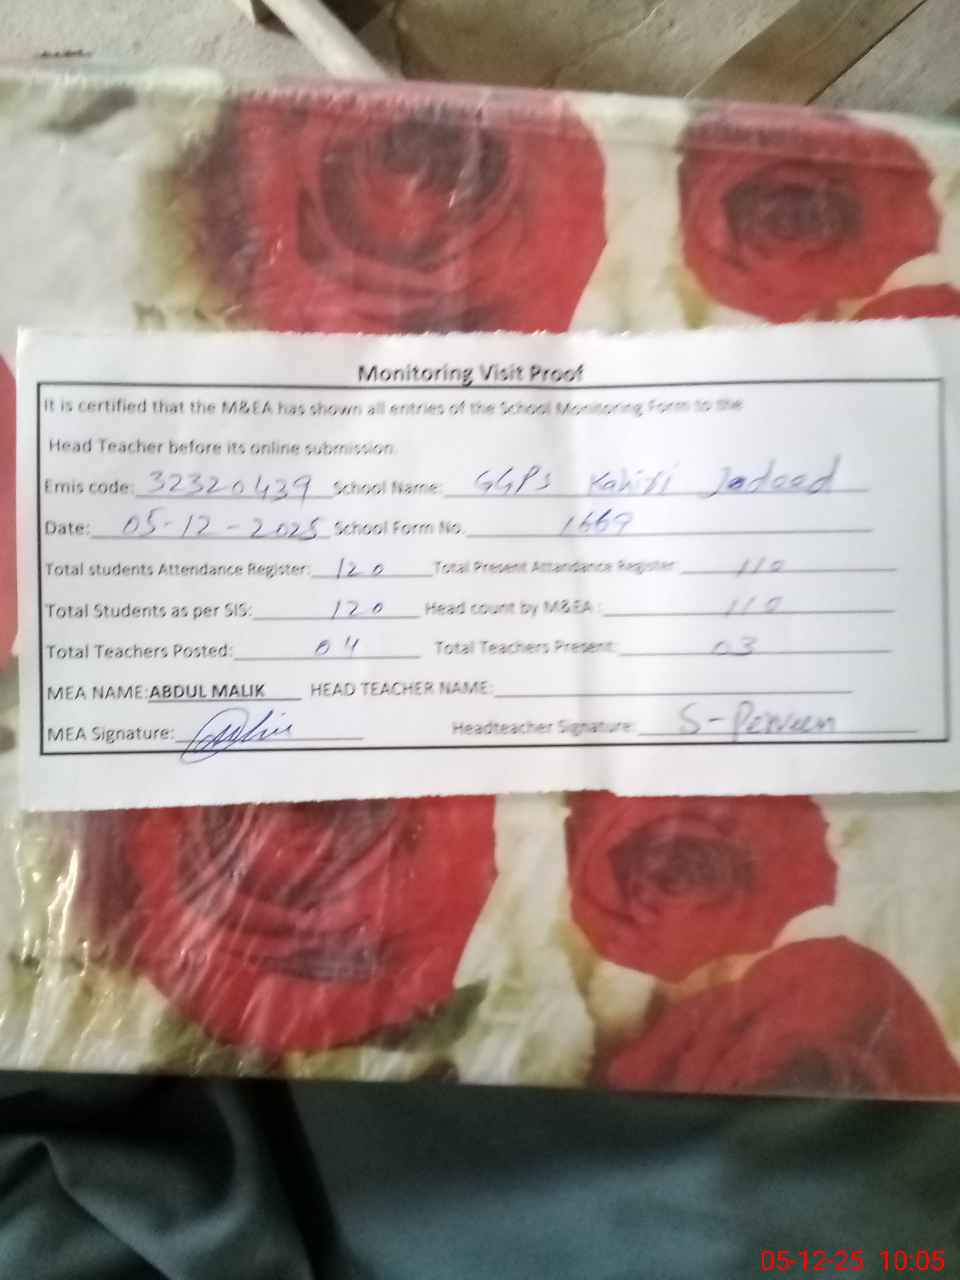 Monitoring Visit Proof
It is certified that the M&EA has shown all entries of the School Monitoring Form to the
Head Teacher before its online submission.
Emis code: 32320439 School Name: GGPS Jadeed
Date: 05-12-2025 School Form No. 1669
Total students Attendance Register: 120 Total Present Attandance Register: 110
Total Students as per SIS: 120 Head count by M&EA : 110
Total Teachers Posted: 04 Total Teachers Present: 03
MEA NAME:ABDUL MALIK HEAD TEACHER NAME:
MEA Signature: Headteacher Signature: S-Perveen
05-12-25 10:05